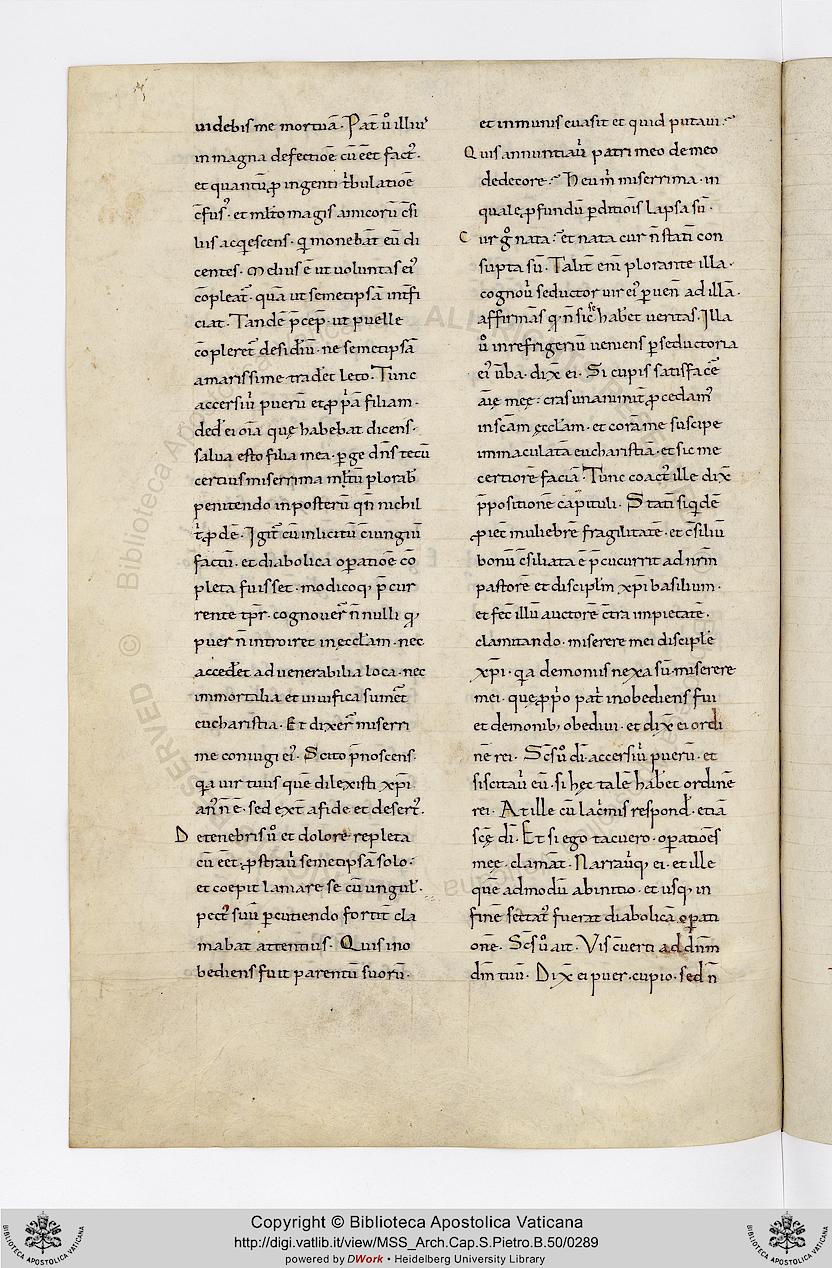 uidebis me mortuā. Pat̄ u̓ illiuˢ
in magna defectioē cū eēt fact᾽.
et quantū ꝓ ingenti t̄bulatioē
c̄fus᾽. et ml̄to magis amicorū c̄si
liis acq̇escens. q̇ monebāt eū di
centes. Melius ē ut uoluntas ei᾽
cōpleat᾽. quā ut semetipsā int̄fi
ciat. Tandē p̄cep̄. ut puelle
cōpleret᾽ desid̓iū. ne semetipsā
amarissime trad̓et leto. Tunc
accersiu᾽ puerū et ꝓpⁱā filiam.
ded᾽ ei oīa quę habebat dicens.
salua esto filia mea. ꝑge dn̄s tecū
certius miserrima ml̄tū plorab᾽
penitendo in posterū qn̄ nichil
t᾽ ꝓdē. Igit᾽ cū inlicitū c̄iungiū
factū. et diabolica oꝑatioē cō
pleta fuisset. modicoq, p̄cur
rente tp̄r. cognouer̄ n̄nulli q,
puer n̄ introiret in ęccl̄am. nec
acced̓et ad uenerabilia loca. nec
immortalia et uiuifica sum̓et
eucharistia. Et dixer̄ miserri
me coniugi ei᾽. Scito p̄noscens.
qa uir tuus quē dilexisti xp̄i
an᾽ n̄ ē. sed ext̄ a fide et desert᾽.
De tenebris u̓ et dolore repleta
cū eēt. ꝓstrau᾽ semetipsā solo.
et coepit lamare se cū ungul᾽.
pect᾽ suū ꝑcutiendo fortit̄ cla
mabat attentius. Quis ino
bediens fuit parentū suorū.
et inmunis euasit et quid putaui.
Quis annuntiau᾽ patri meo de meo
dedecore. Heu m̄ miserrima. in
quale ꝓfundū ꝑditiōis lapsa sū.
Cur g̊ nata. et nata cur n̄ statī con
supta sū. Talit̄ enī plorante illa.
cognou᾽ seductor uir ei᾽ ꝑuen̄ ad illā.
affirmās q, n̄ sic se hab̓et ueritas. Illa
u̓ in refrigeriū ueniens ꝑ seductoria
ei᾽ u̓ba. dix̄ ei. Si cupis satisfac̄e
aīę męę. cras unanimit̄ ꝓcedam᾽
in sc̄am ęccl̄am. et corā me suscipe
immaculata eucharistiā. et sic me
certiorē faciā. Tunc coact᾽ ille dix̄
p̄positionē capituli. Statī siq̇dē
ꝓiec̄ muliebrē fragilitatē. et c̄siliū
bonū c̄siliata ē p̄cucurrit ad nr̄m
pastorē et discipl̄m xp̄i basilium.
et fec̄ illū auctorē c̄tra impietatē.
clamitando. miserere mei disciplē
xp̄i. qa demoniis nexa sū. miserere
mei. quę ꝓpⁱo pat᾽ inobediens fui
et demonib, obediui. et dix̄ ei ordi
nē rei. Sc̄s u̓ dī. accersiu᾽ puerū. et
siscitau᾽ eū. si hęc talē hab̓et ordinē
rei. At ille cū lac̓mis respond᾽. etiā
scē dī. Et si ego tacuero. oꝑatiōes
męę. clamāt. Narrau᾽q, ei. et ille
quē admodū ab initio. et usq, in
finē sectat᾽ fuerat diabolicā oꝑati
onē. Sc̄s u̓ ait. Vis c̄uerti ad dn̄m
dm̄ tuū. Dix̄ ei puer. cupio. sed n̄
Copyright © Biblioteca Apostolica Vaticana
http://digi.vatlib.it/view/MSS_Arch.Cap.S.Pietro.B.50/0289
powered by DWork • Heidelberg University Library